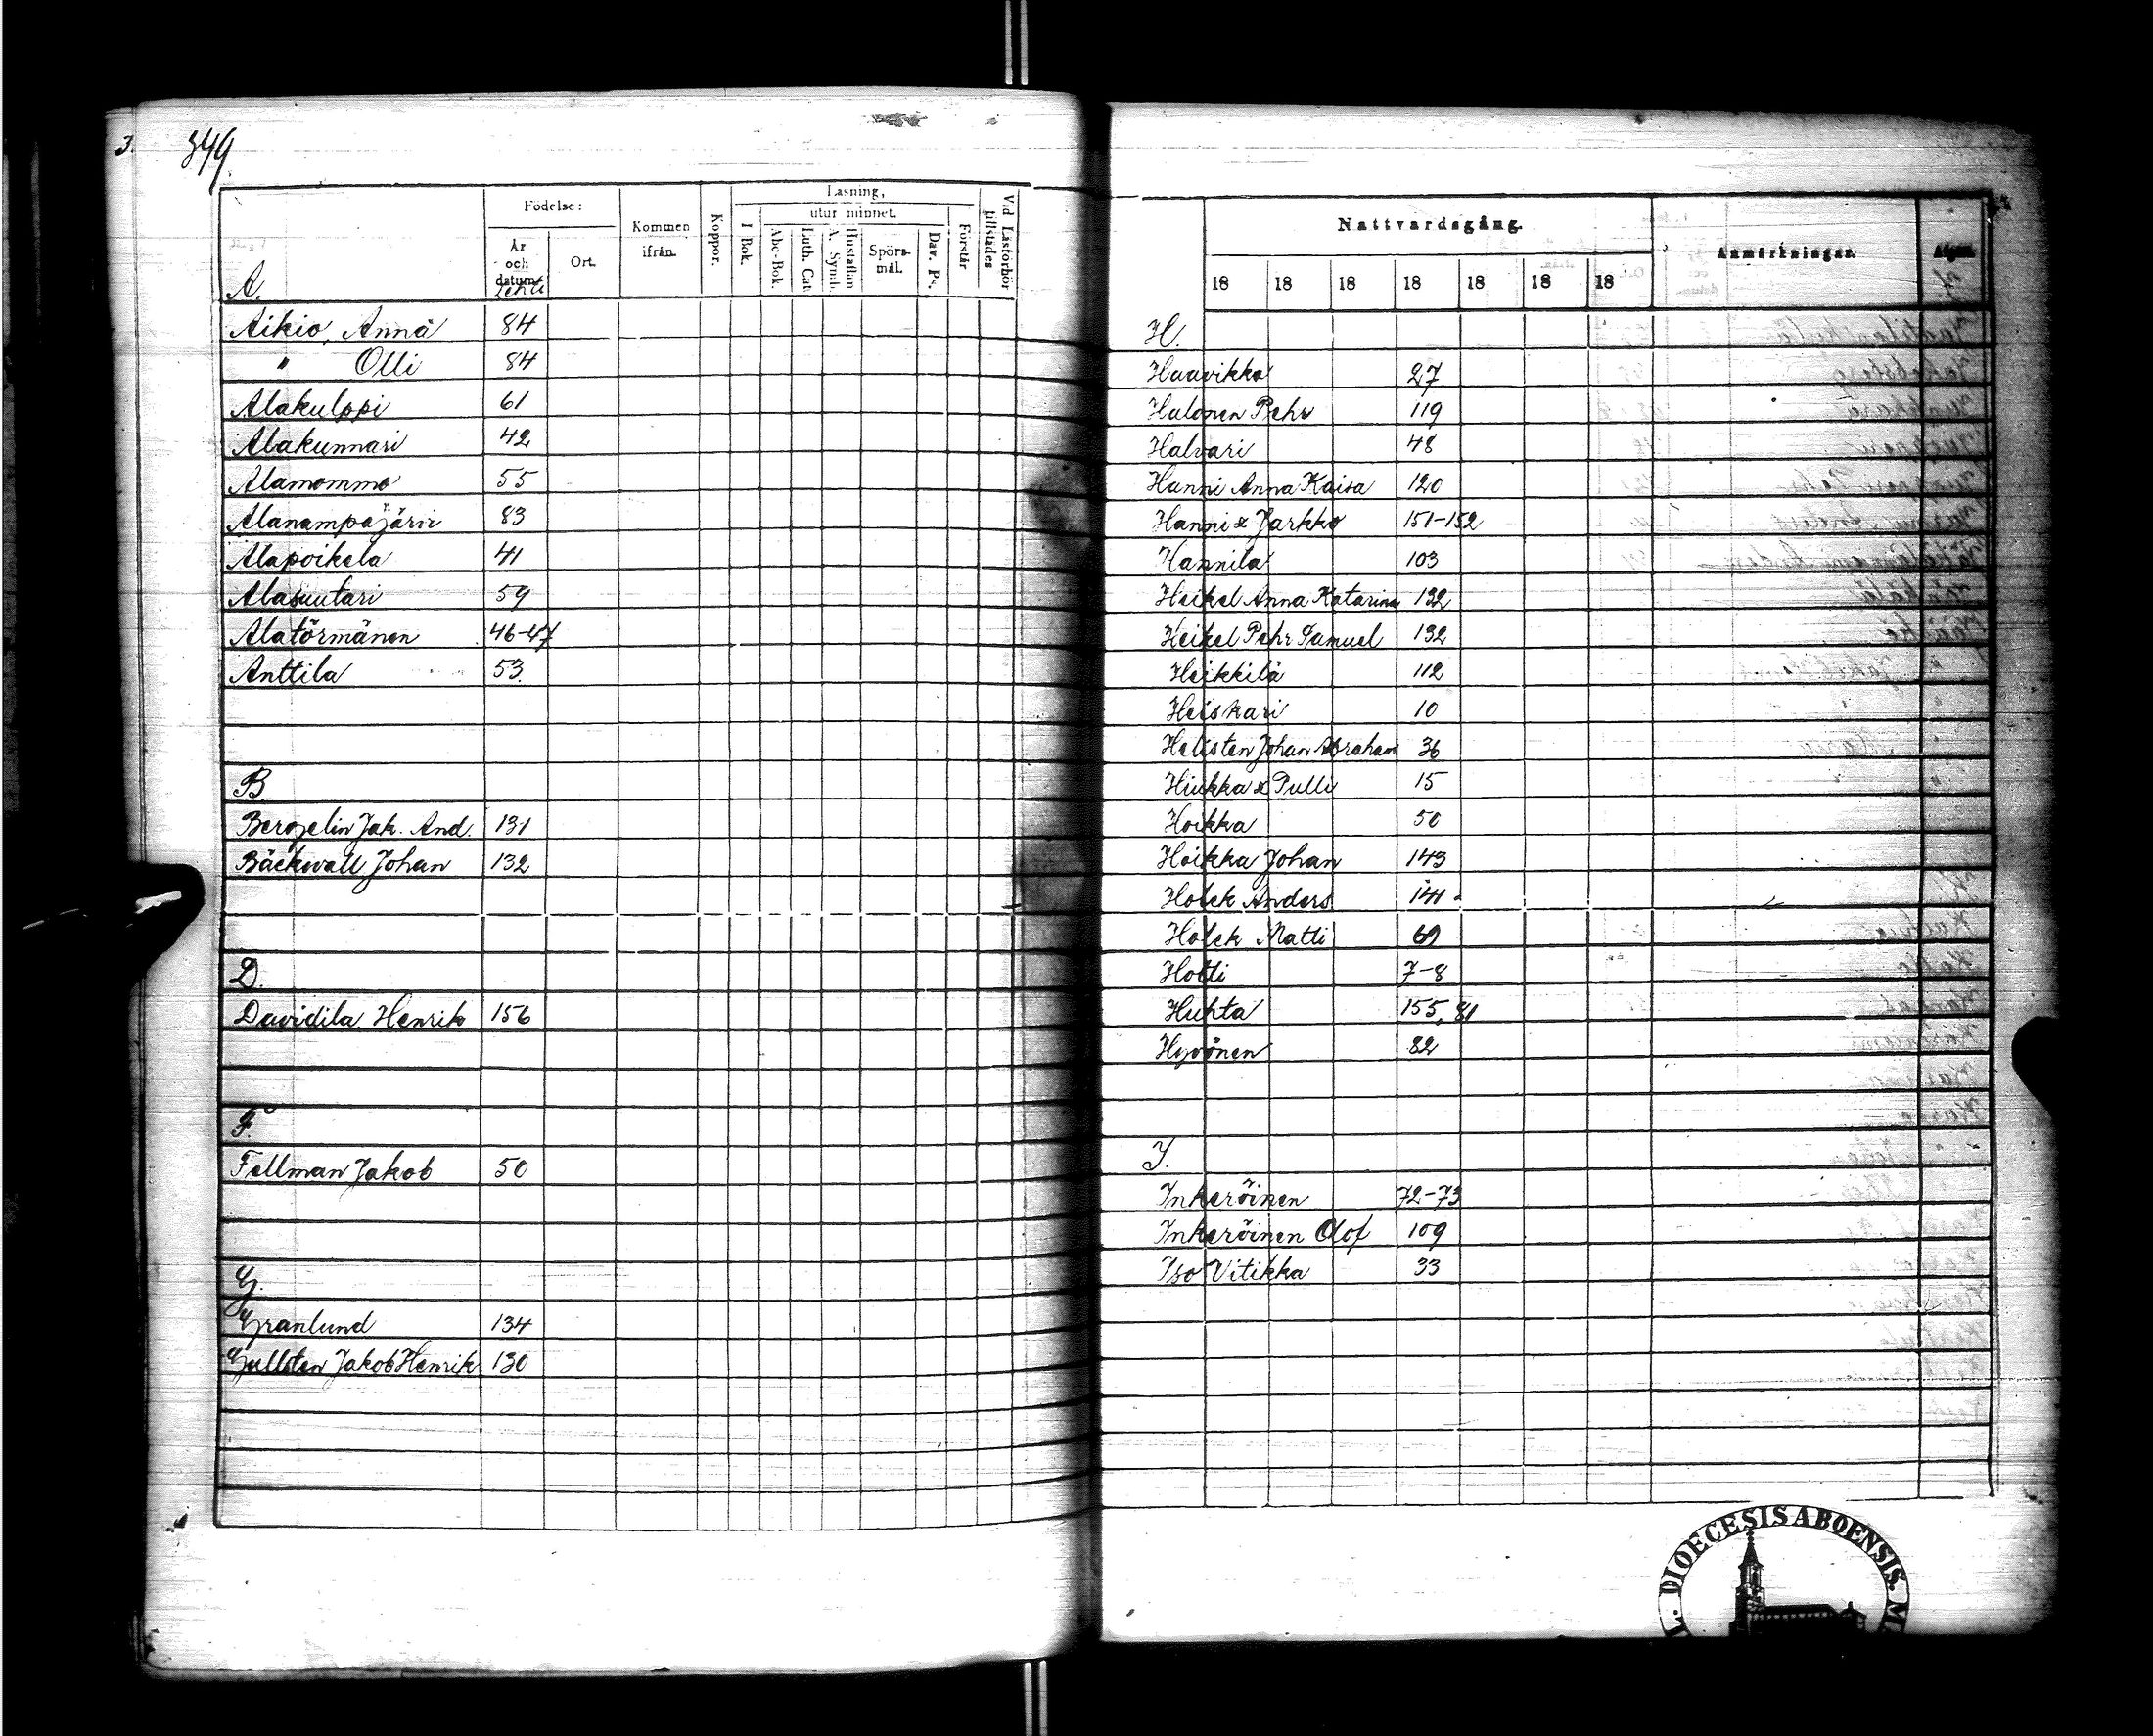 349
Födelse:
Kommen ifrån.
Koppor.
Läsning,
utur minnet.
I Bok.
Abc-Bok.
Luth. Cat.
A. Symb.
Hustaflan
Spörs-mål.
Dav. Ps.
Förstår
Vid Läsförhör tillstädes
År och datum.
Ort.
A. Lehti
Aikio, Anna 84
" Olli 84
Alakulppi 61
Alakunnari 42
Alamommo 55
Alanampajärvi 83
Alapoikela 41
Alasuutari 59
Alatörmänen 46-47
Anttila 53.
B.
Bergelin Jak. And. 131
Bäckwall, Johan 132
D.
Davidila, Henrik 156
F.
Fellman Jakob 50
G.
Granlund 134
Gullsten Jakob Henrik 130
Nattvardsgång.
Anmärkningar.
18 18 18 18 18 18 18
H.
Haavikko 27
Halonen Pehr 119
Halvari 48
Hanni Anna Kaisa 120
Hanni & Jarkko 151-152
Hannila 103
Heikel Anna Katarina 132
Heikel Pehr Samuel 132
Heikkilä 112
Heiskari 10
Hellsten Johan Abraham 36
Hiukka & Pulli 15
Hoikka 50
Hoikka Johan 143
Holck Anders 141
Holck Matti
Hotti 7-8
Huhta 155, 81
Hyvönen 82
I.
Inkeröinen 72-73
Inkeröinen Olof 109
Iso Vitikka 33
DIOECESIS ABOENSIS.